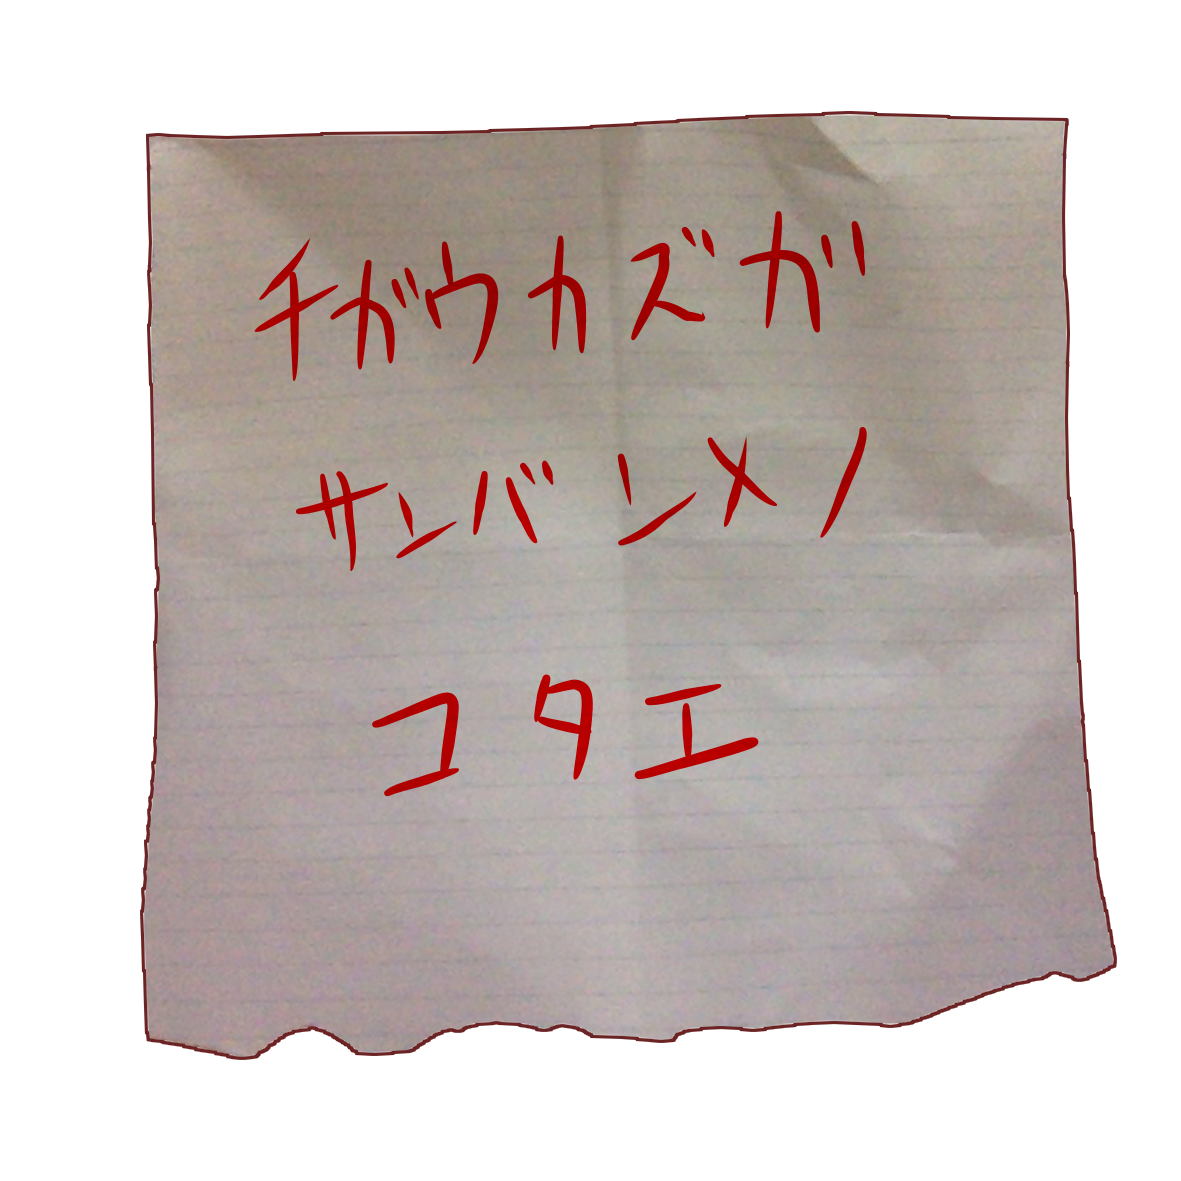 チガウカズガ
サンバンメノ
コタエ